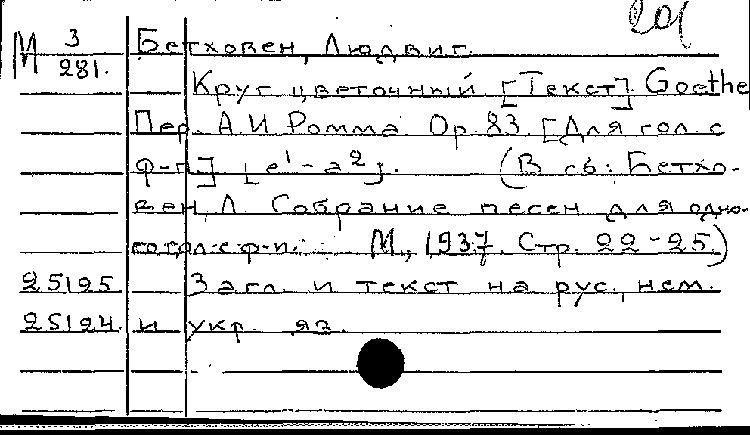 201
М 3/281. Бетховен, Людвиг.
Круг цветочный. [Текст] Goethe
Пер. А.И. Ромма. Op. 83. [Для гол. с
ф-п.] [e¹-a²]. (В сб: Бетхо-
вен, Л. Собрание песен для одно-
го гол. с ф-п. М., 1937. Стр. 22-25.)
25195 Загл. и текст на рус., нем.
25194. и укр. яз.